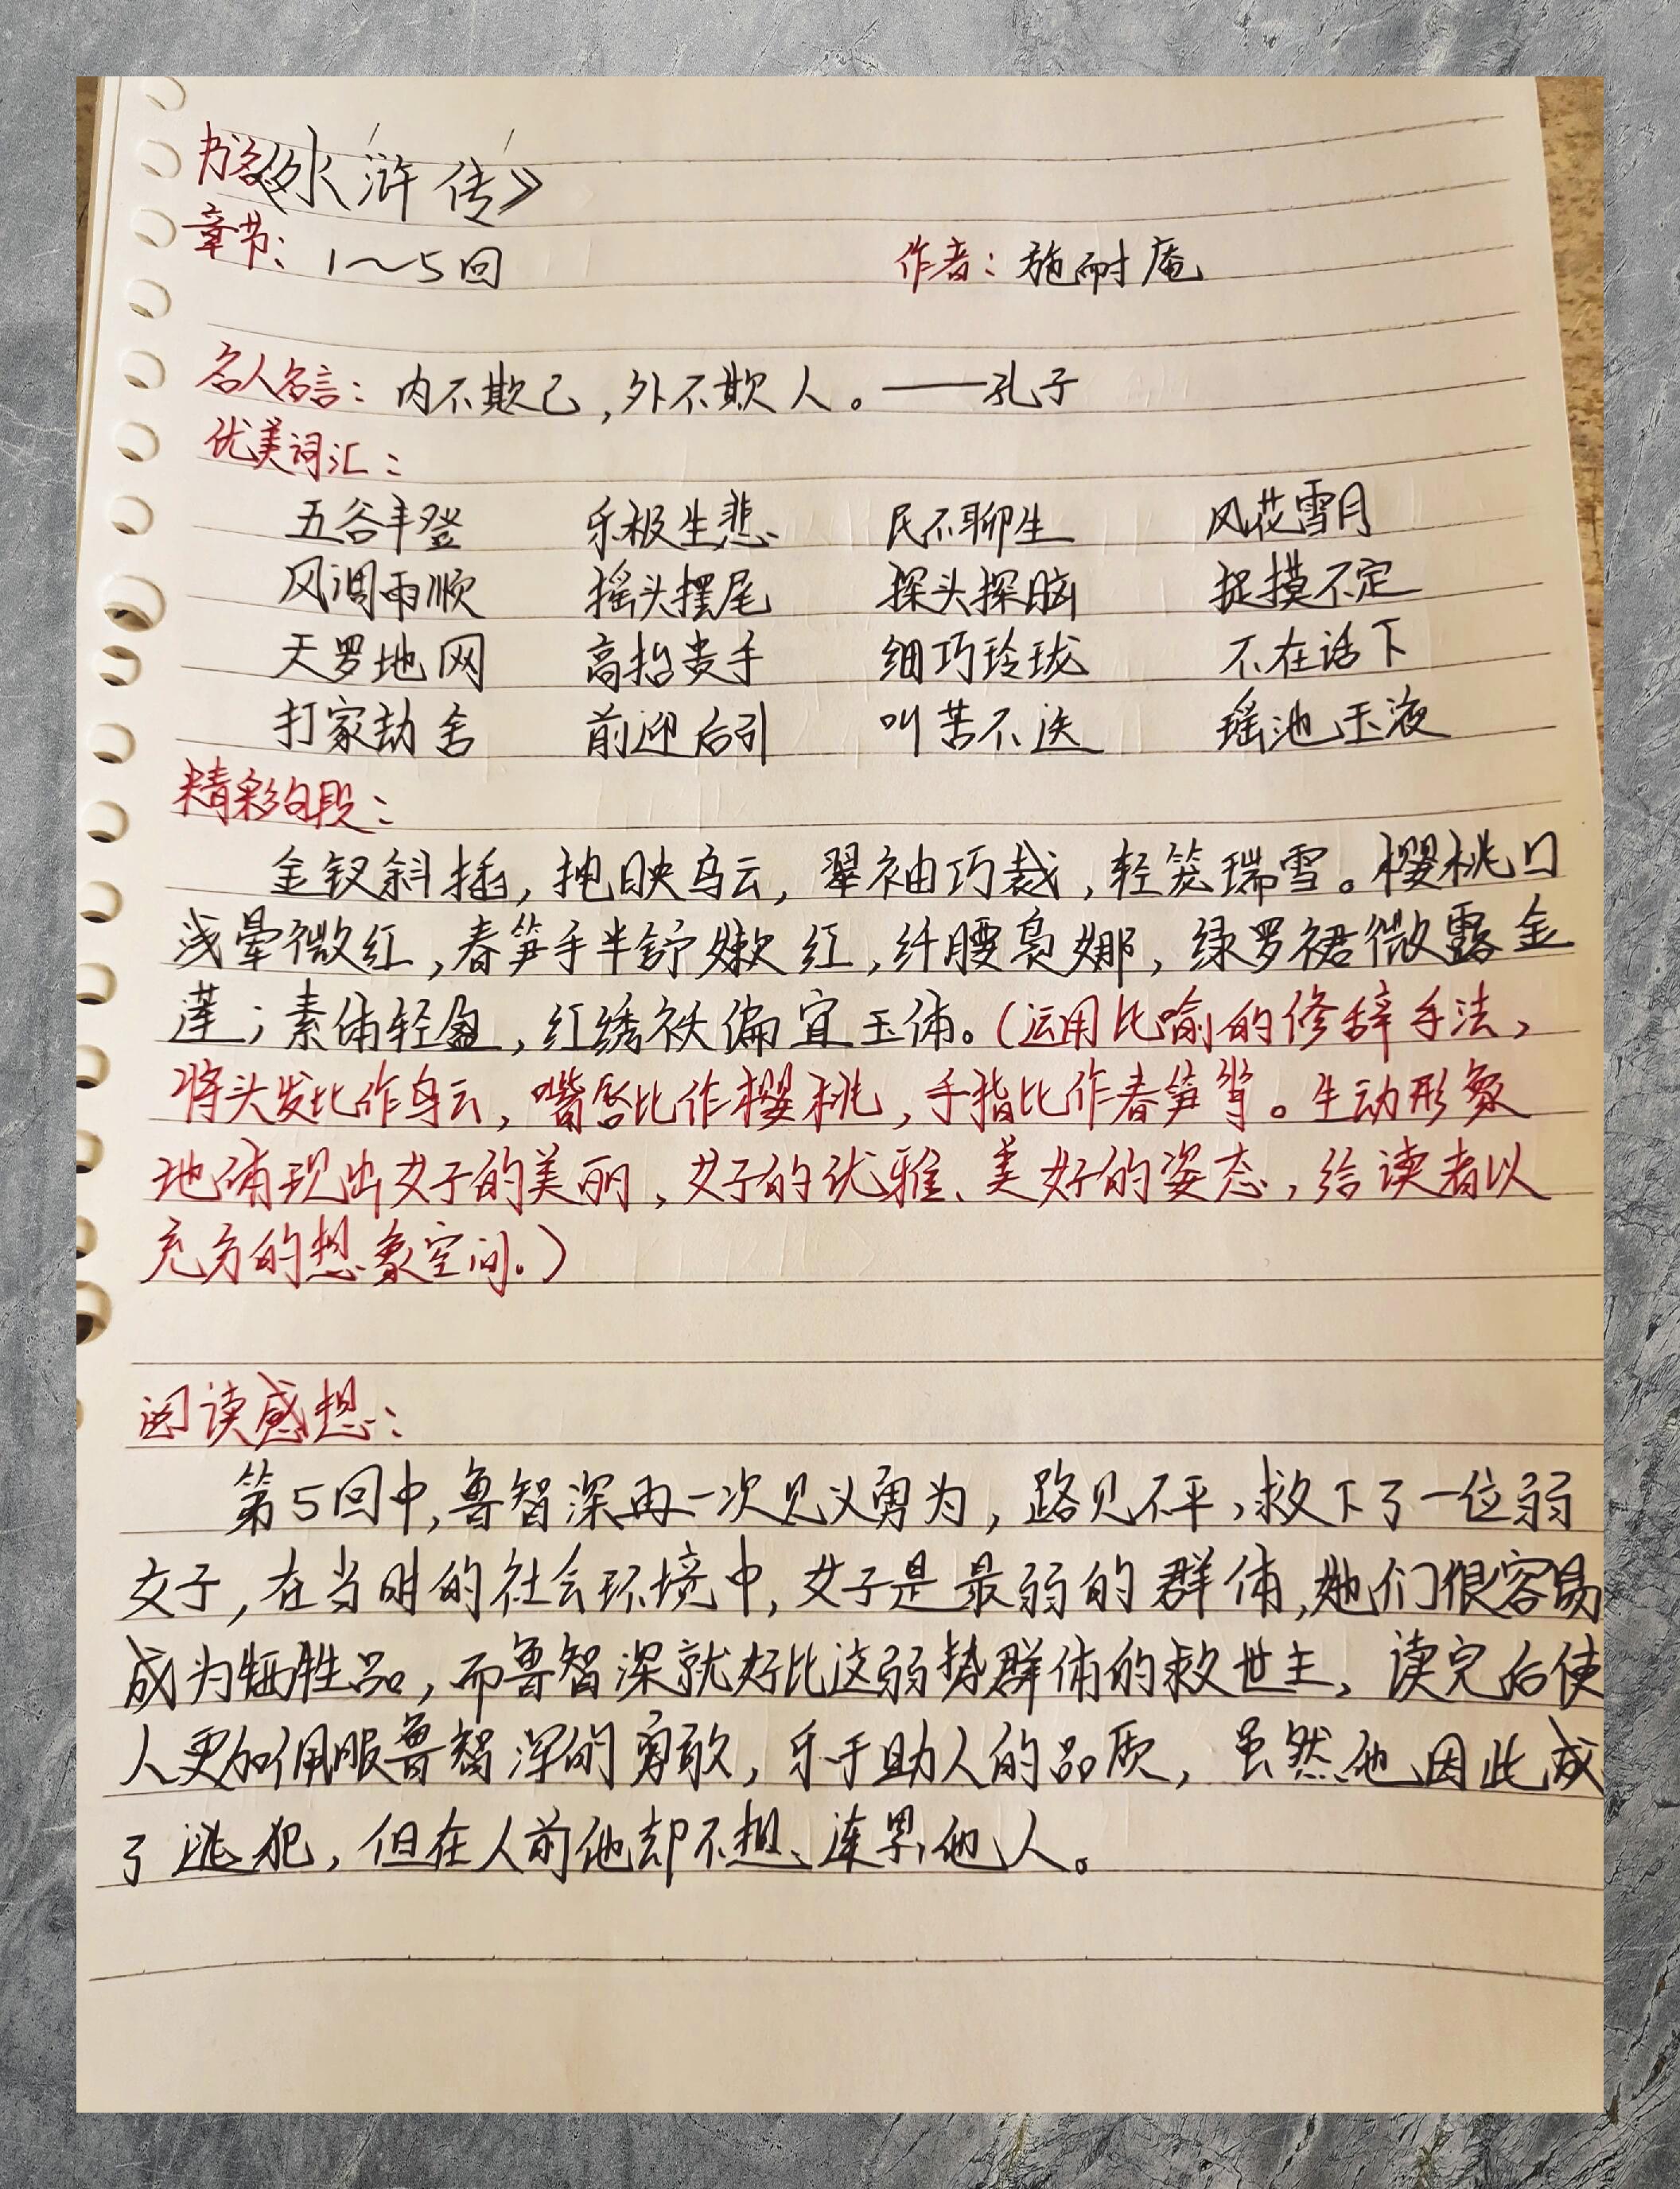 书名:《水浒传》
章节：1～5回 作者：施耐庵
名人名言：内不欺己，外不欺人。——孔子
优美词汇：
五谷丰登 乐极生悲 民不聊生 风花雪月
风调雨顺 摇头摆尾 探头探脑 捉摸不定
天罗地网 高抬贵手 细巧玲珑 不在话下
打家劫舍 前迎后引 叫苦不迭 瑶池玉液
精彩句段：
金钗斜插，掩映乌云，翠袖巧裁，轻笼瑞雪。樱桃口
浅晕微红，春笋手半舒嫩红，纤腰袅娜，绿罗裙微露金
莲；素体轻盈，红绣袄偏宜玉体。（运用比喻的修辞手法，
将头发比作乌云，嘴唇比作樱桃，手指比作春笋等。生动形象
地体现出女子的美丽，女子的优雅、美好的姿态，给读者以
充分的想象空间。）
阅读感想：
第5回中，鲁智深再一次见义勇为，路见不平，救下了一位弱
女子，在当时的社会环境中，女子是最弱的群体，她们很容易
成为牺牲品，而鲁智深就好比这弱势群体的救世主，读完后使
人更加佩服鲁智深的勇敢，乐于助人的品质，虽然他因此成
了逃犯，但在人前他却不想连累他人。